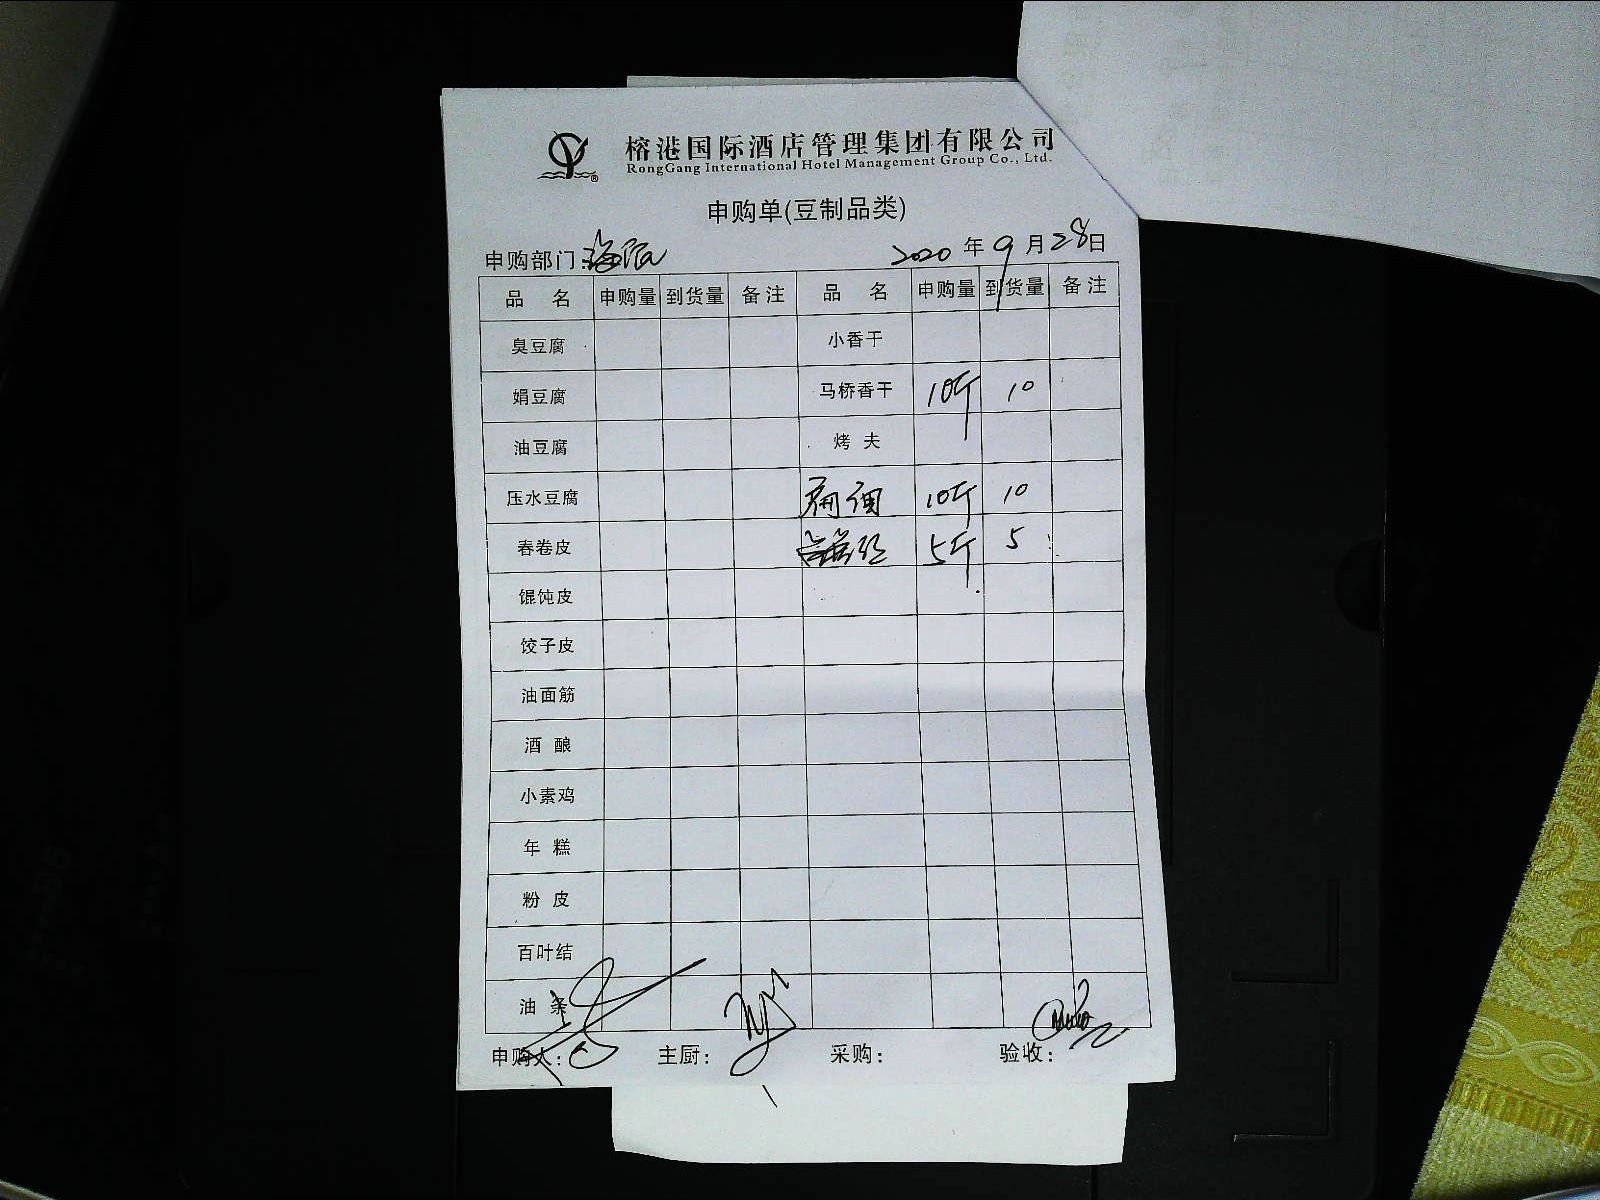 榕港国际酒店管理集团有限公司
RongGang International Hotel Management Group Co., Ltd.
申购单(豆制品类)
申购部门: 2020 年 9 月 28 日
品 名 申购量 到货量 备注 品 名 申购量 到货量 备注
臭豆腐 小香干
娟豆腐 马桥香干 10斤 10
油豆腐 烤 夫
压水豆腐 10斤 10
春卷皮 5斤 5
馄饨皮
饺子皮
油面筋
酒 酿
小素鸡
年 糕
粉 皮
百叶结
油 条
申购人: 主厨: 采购: 验收: